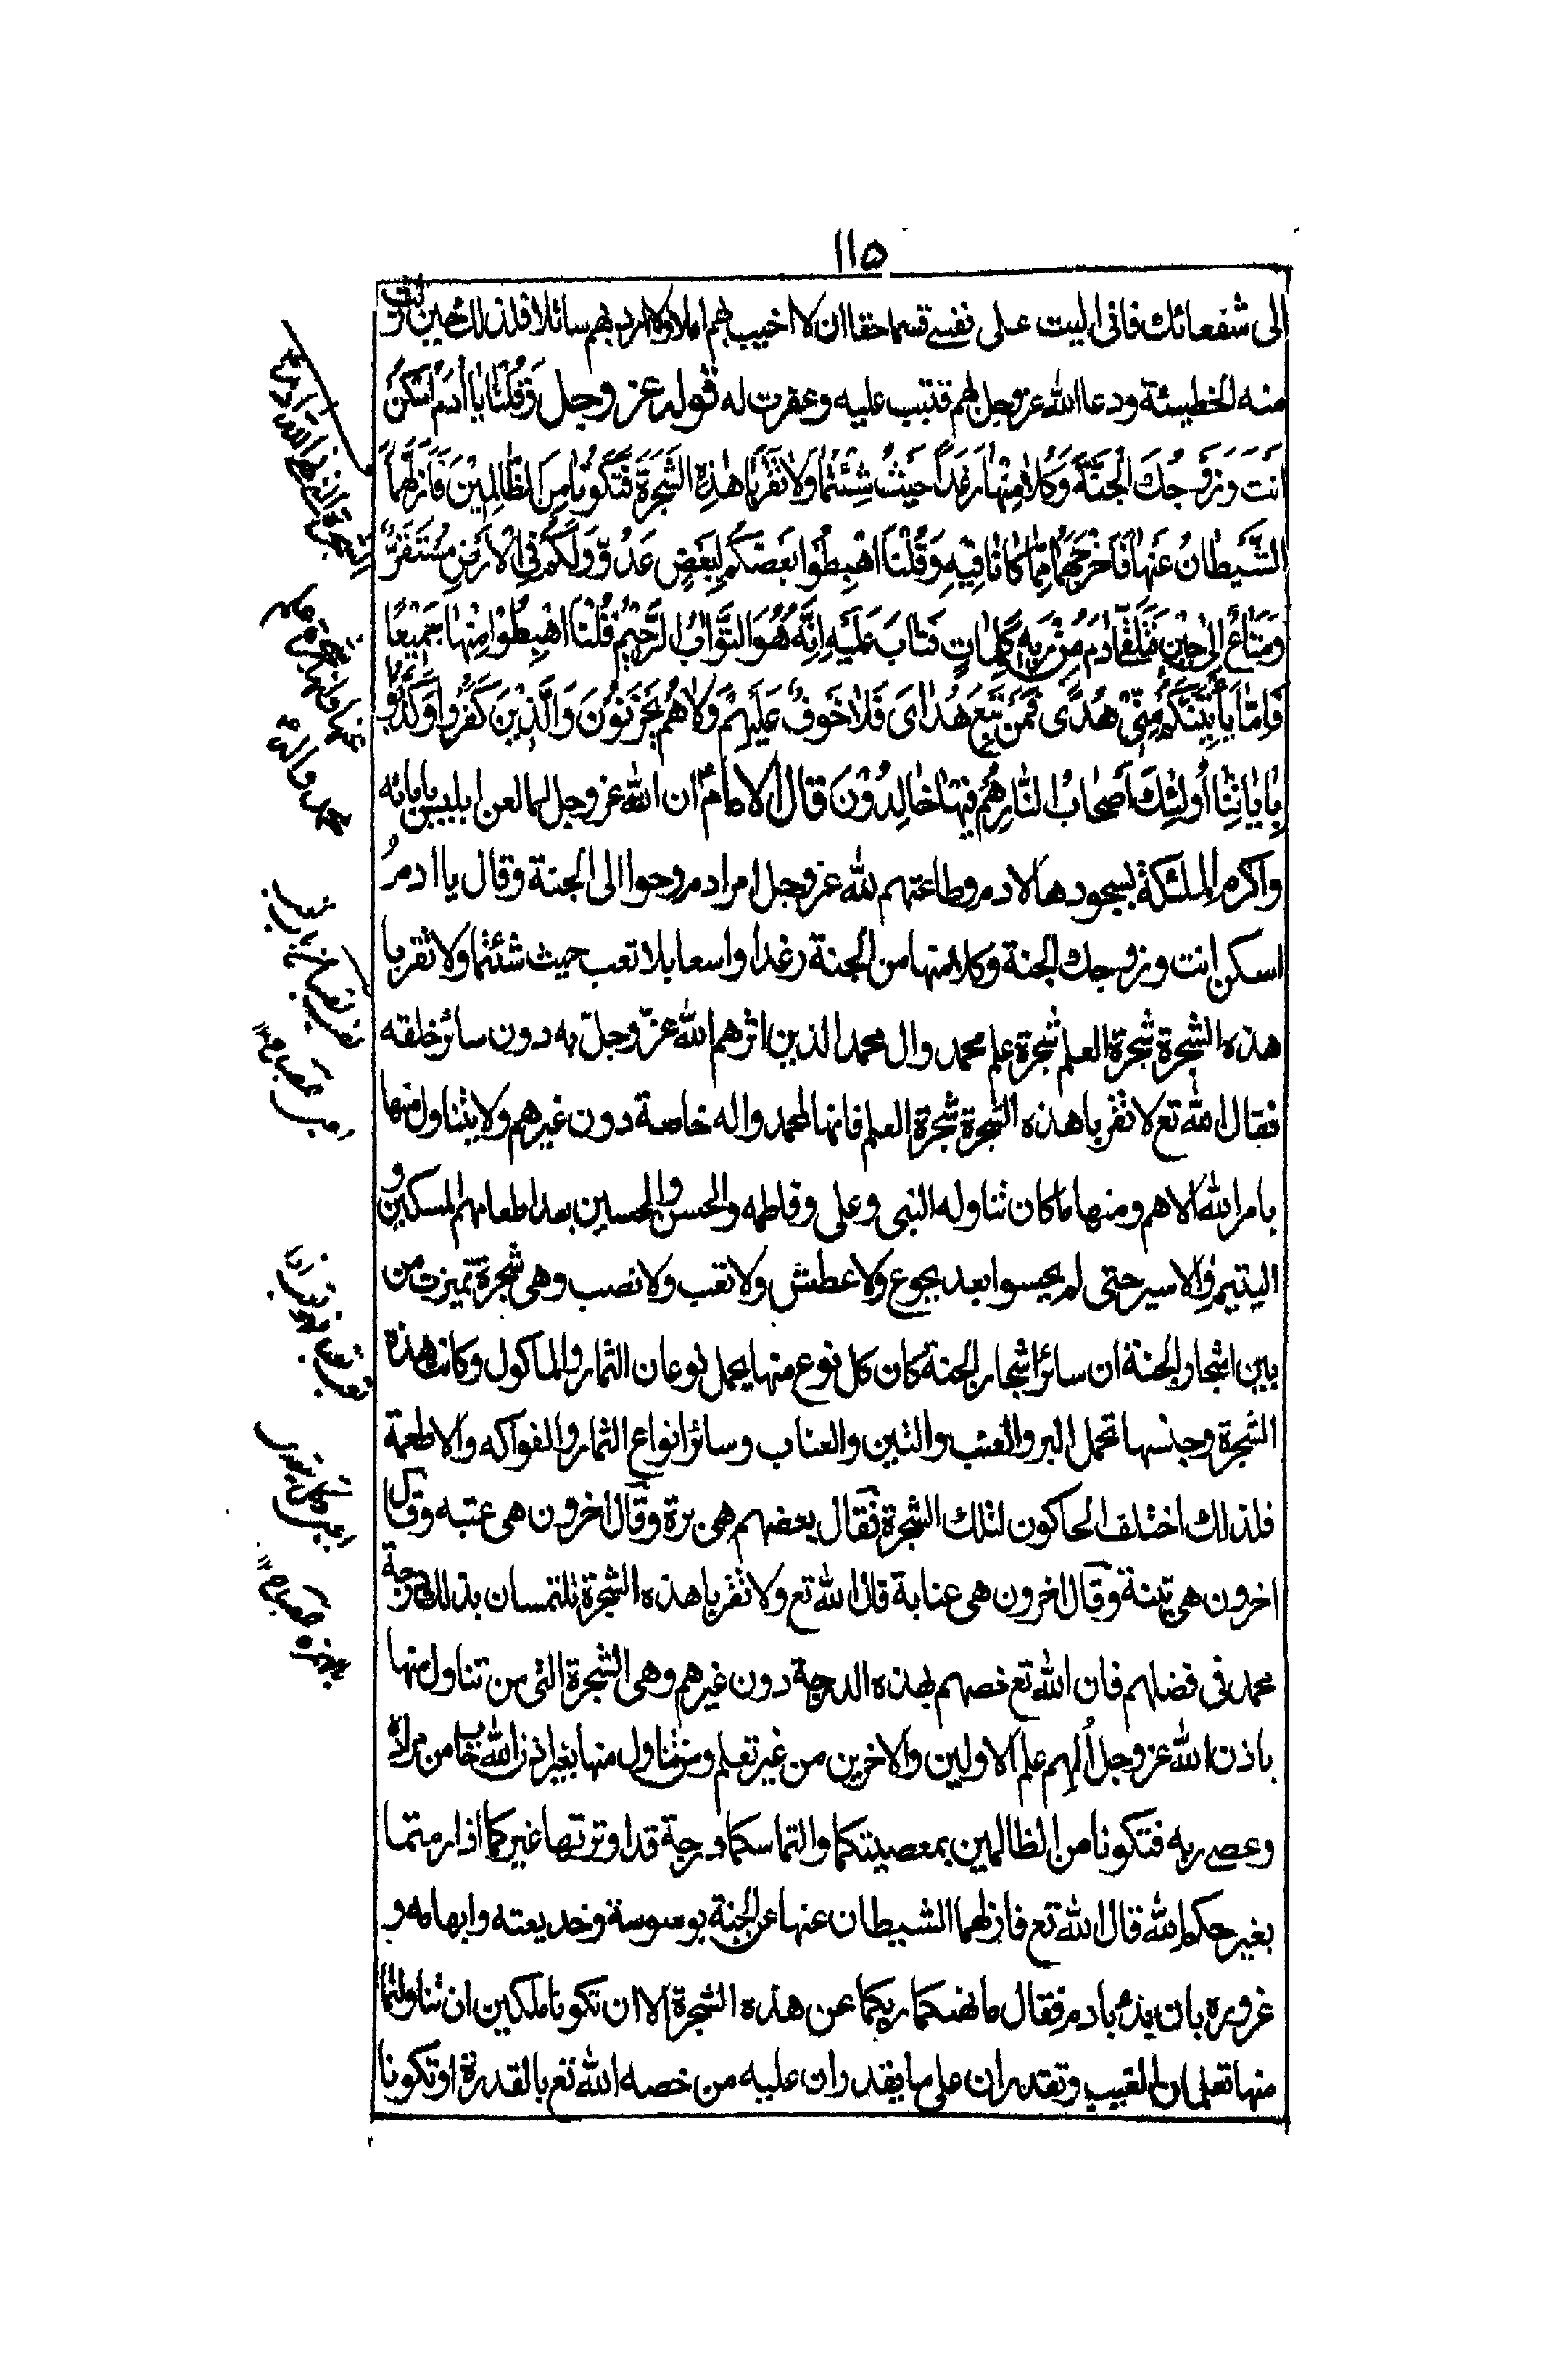 ١١۵
الى شفعائك فانى اليت على نفسى قسما حقا ان لا اخيب بهم املا ولا ارد بهم سائلا فلذلك حين زلت
منه الخطيئة ودعا الله عز وجل بهم فتيب عليه وغفرت له قوله عز وجل وَقُلْنَا يَا اٰدَمُ اسْكُنْ
اَنْتَ وَزَوْجُكَ الْجَنَّةَ وَكُلَا مِنْهَا رَغَدًا حَيْثُ شِئْتُمَا وَلَا تَقْرَبَا هٰذِهِ الشَّجَرَةَ فَتَكُونَا مِنَ الظَّالِمِيْنَ فَاَزَلَّهُمَا
الشَّيْطَانُ عَنْهَا فَاَخْرَجَهُمَا مِمَّا كَانَا فِيْهِ وَقُلْنَا اهْبِطُوْا بَعْضُكُمْ لِبَعْضٍ عَدُوٌّ وَلَكُمْ فِي الْاَرْضِ مُسْتَقَرٌّ
وَمَتَاعٌ اِلٰى حِيْنٍ فَتَلَقّٰى اٰدَمُ مِنْ رَبِّهِ كَلِمَاتٍ فَتَابَ عَلَيْهِ اِنَّهُ هُوَ التَّوَّابُ الرَّحِيْمُ قُلْنَا اهْبِطُوْا مِنْهَا جَمِيْعًا
فَاِمَّا يَاْتِيَنَّكُمْ مِنِّيْ هُدًى فَمَنْ تَبِعَ هُدَايَ فَلَا خَوْفٌ عَلَيْهِمْ وَلَا هُمْ يَحْزَنُوْنَ وَالَّذِيْنَ كَفَرُوْا وَكَذَّبُوْا
بِاٰيَاتِنَا اُولٰئِكَ اَصْحَابُ النَّارِ هُمْ فِيْهَا خَالِدُوْنَ قال الامامؑ ان الله عز وجل لما لعن ابليس بابائه
واكرم الملئكة بسجودها لادم وطاعتهم لله عز وجل امر ادم وحوا الى الجنة وقال يا ادم
اسكن انت وزوجك الجنة وكلا منها من الجنة رغدا واسعا بلا تعب حيث شئتما ولا تقربا
هذه الشجرة شجرة العلم شجرة علم محمد وال محمد الذين اثرهم الله عزّ وجلّ به دون سائر خلقه
فقال الله تع لا تقربا هذه الشجرة شجرة العلم فانها لمحمد واله خاصة دون غيرهم ولا يتناول منها
بامر الله الا هم ومنها ما كان تناوله النبى وعلى وفاطمه والحسن والحسين بعد اطعامهم المسكين و
اليتيم والاسير حتى لم يحسوا بعد بجوع ولا عطش ولا تعب ولا نصب وهى شجرة تميزت من
بين اشجار الجنة ان سائر اشجار الجنة كان كل نوع منها يحمل نوعا من الثمار والماكول وكانت هذه
الشجرة وجنسها تحمل البر والعنب والتين والعناب وسائر انواع الثمار والفواكه والاطعمة
فلذلك اختلف الحاكون لتلك الشجرة فقال بعضهم هى برة وقال اخرون هى عنبه وقال
اخرون هى تينة وقال اخرون هى عنابة قال الله تع ولا تقربا هذه الشجرة تلتمسان بذلك درجة
محمد فى فضلهم فان الله تع خصهم بهذه الدرجة دون غيرهم وهى الشجرة التى من تناول منها
باذن الله عز وجل اُلهم علم الاولين والاخرين من غير تعلم ومن تناول منها بغير اذن الله خاب من مراده
وعصى ربه فتكونا من الظالمين بمعصيتكما والتماسكما درجة قد اوثر بها غيركما اذا رمتما
بغير حكم الله قال الله تع فازلهما الشيطان عنها عن الجنة بوسوسة وخديعته وايهامه و
غروره بان بدء بادم فقال ما نهيكما ربكما عن هذه الشجرة الا ان تكونا ملكين ان تناولتما
منها تعلمان الغيب وتقدران على ما يقدران عليه من خصه الله تع بالقدرة او تكونا
محمد واله